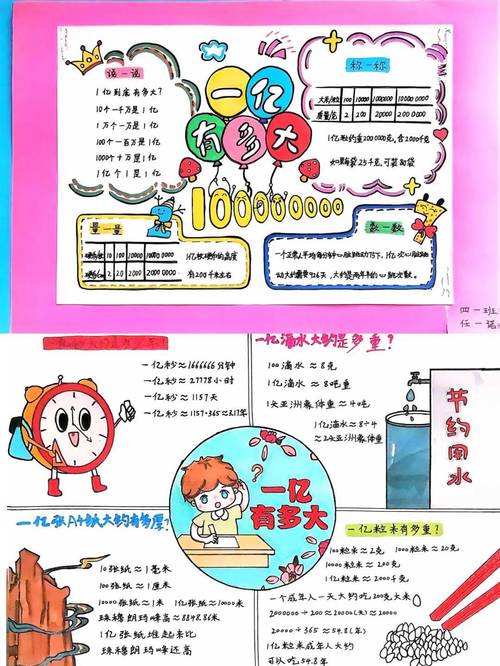 说一说
1亿到底有多大?
10个一千万是1亿
1万个一万是1亿
100个一百万是1亿
1000个十万是1亿
1亿个1是1亿
一亿
有多大
100000000
称一称
大米/粒 100 10000 1000000 100000000
质量/克 2 200
1亿粒约重2000000克,合2000千克
如果每袋25千克,可装80袋
量一量
10 100 10000 100000000
2 20 2000 20000000
1亿枚硬币的高度
有200千米左右
数一数
一个正常人平均每分钟心脏跳动75下,1亿次心脏跳
动大约需要926天,大约是两年半的心跳次数。
四一班
任一诺
一亿秒≈1666666分钟
一亿秒≈27778小时
一亿秒≈1157天
一亿秒≈1157÷365≈3.17年
一亿滴水大约是多重?
100滴水≈8克
1亿滴水≈8吨重
1头亚洲象体重≈4吨
1亿滴水≈8÷4
≈2头亚洲象体重
节约用水
一亿
有多大
?
一亿张A4纸大约有多厚?
10张纸≈1毫米
100张纸≈1厘米
10000张纸≈1米 1亿张纸≈10000米
珠穆朗玛峰高≈8848.86米
1亿张纸堆起来比
珠穆朗玛峰还高
一亿粒米有多重?
100粒米≈2克 1000粒米≈20克
10000粒米≈200克
1亿粒米≈2000千克
一个成年人一天大约吃200克大米
2000000÷200≈20000(天)≈20000
20000÷365≈54.8(年)
1亿粒米成年人大约
可以吃54.8年